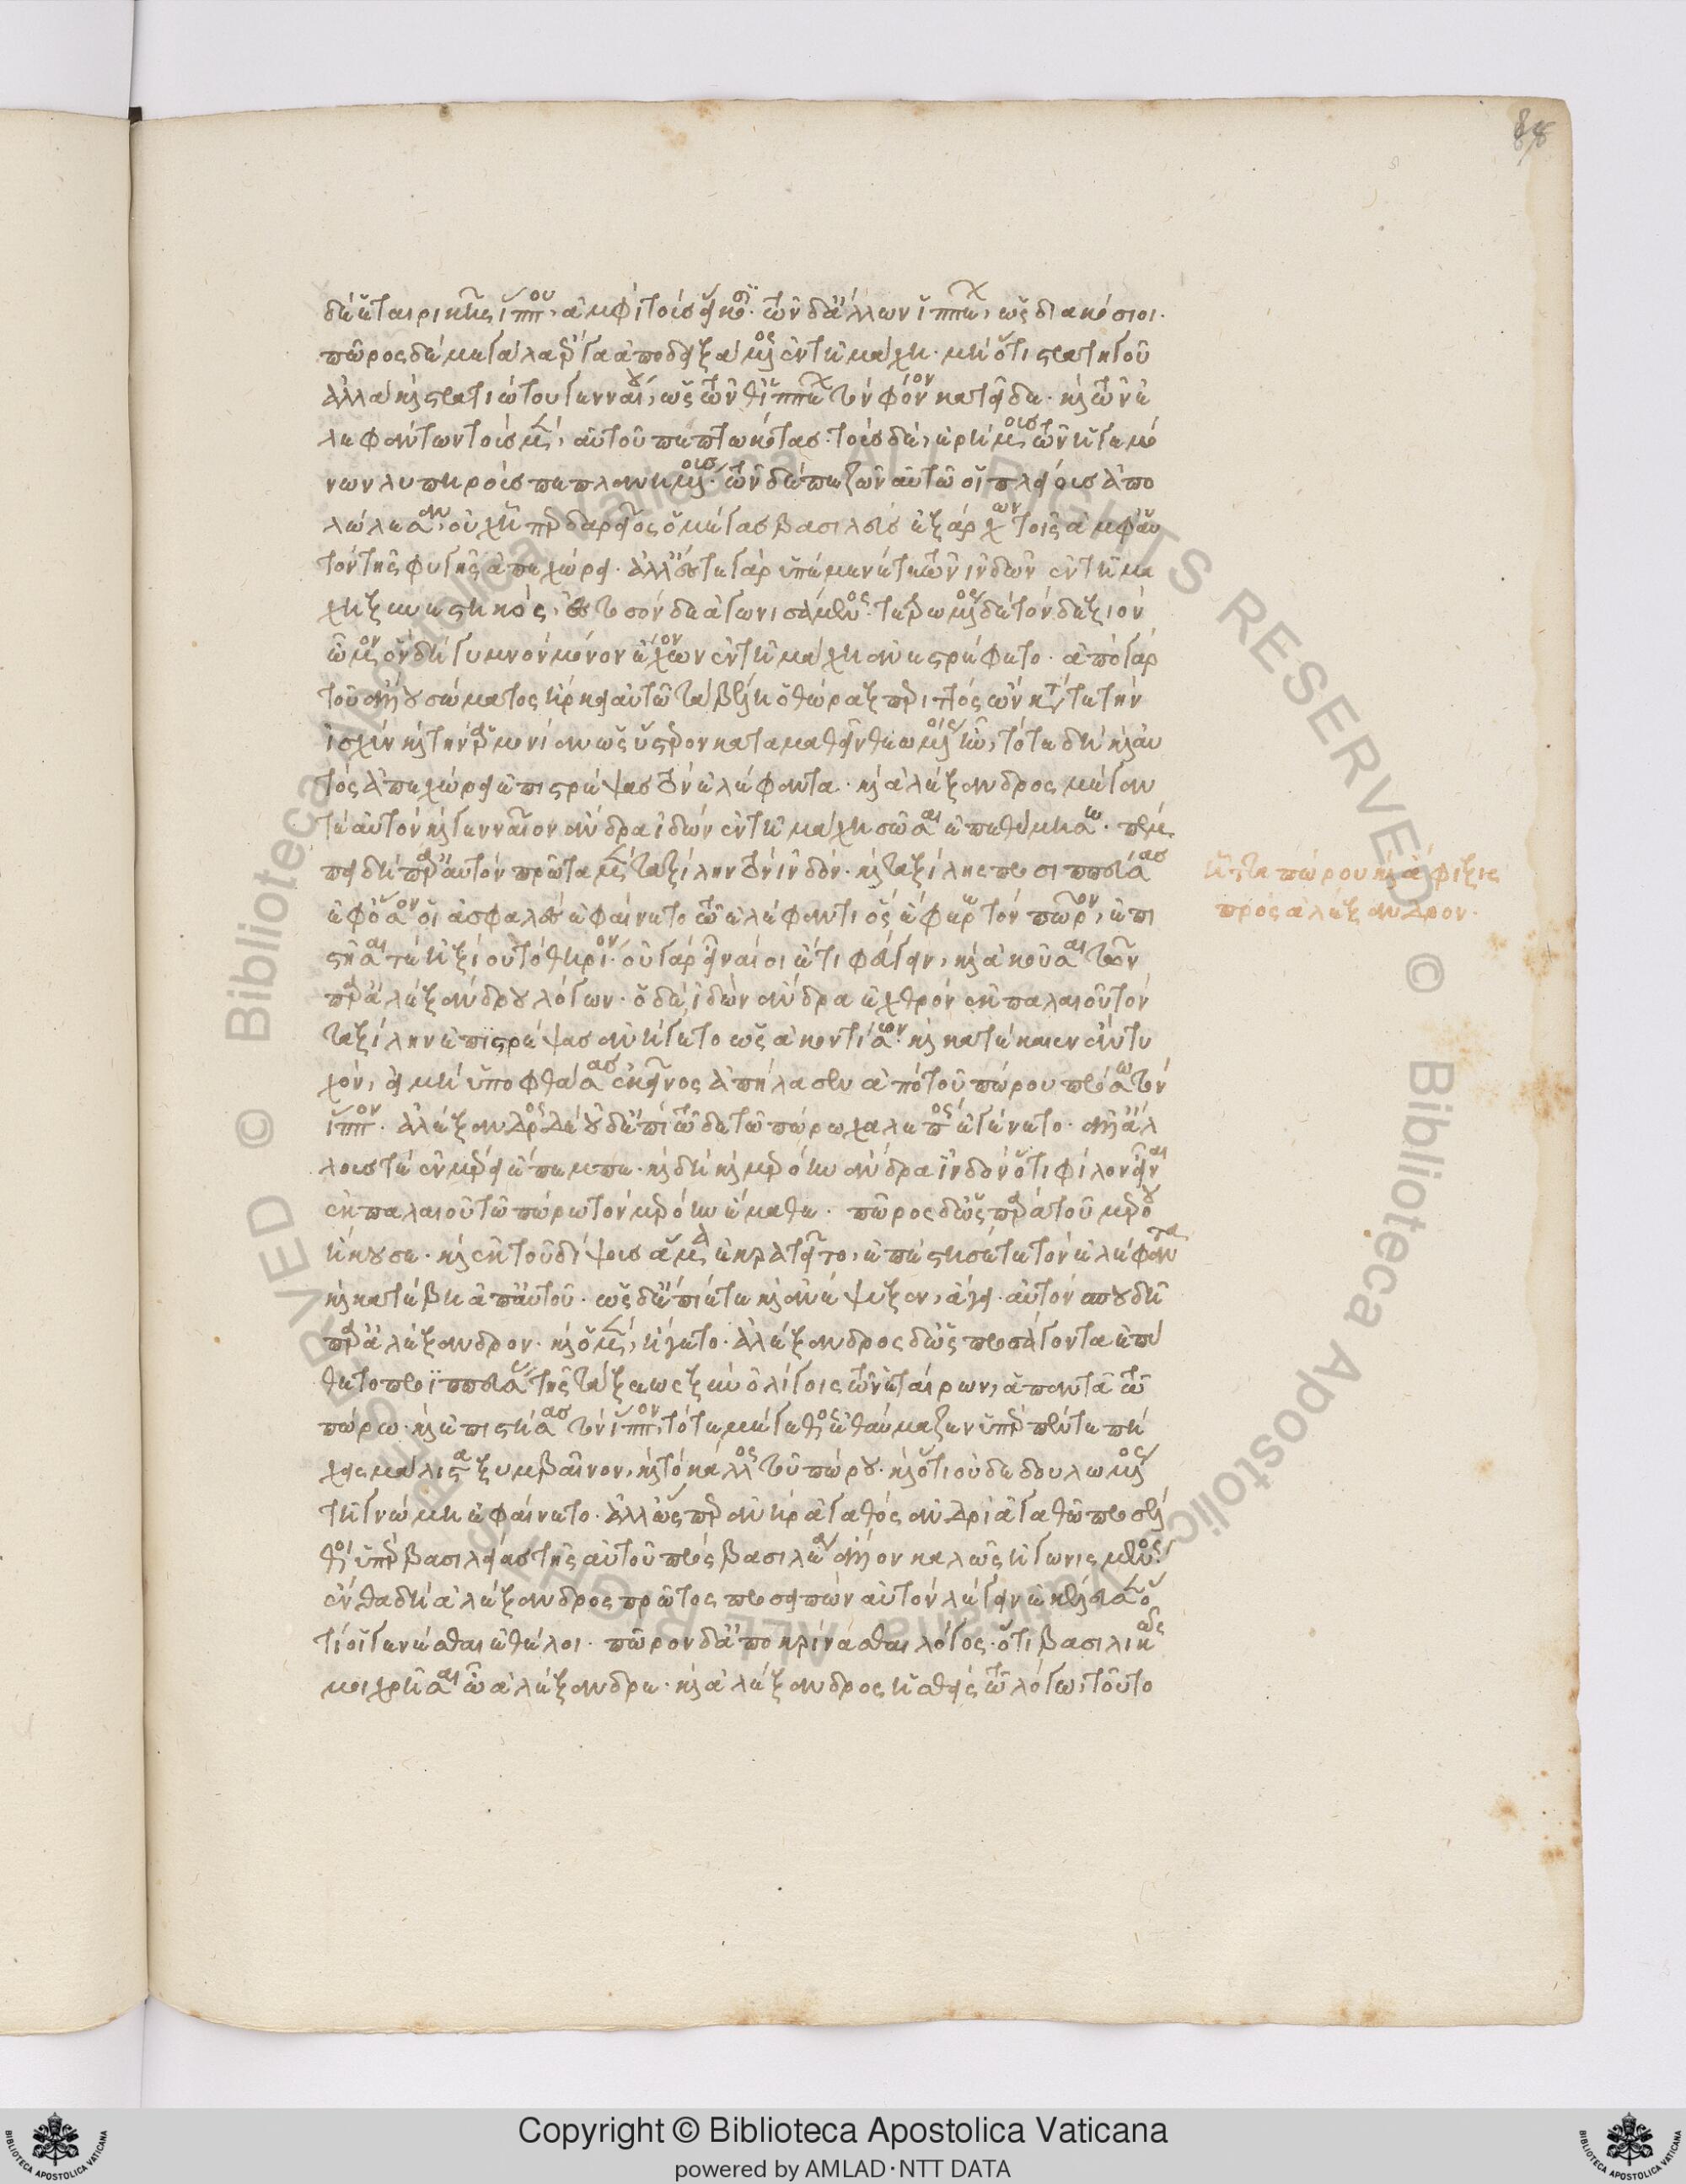 δὲ ἑταιρικῆς ἵππου, ἀμφὶ τοὺς εἴκοσι· τῶν δ' ἄλλων ἱππέων, ὡς διακόσιοι.
πῶρος δὲ μεγάλα ἔργα ἀποδειξάμενος ἐν τῇ μάχῃ· μὴ ὅτι στρατηγοῦ
ἀλλὰ καὶ στρατιώτου γενναίου, ὡς τῶν θ' ἱππέων τὸν φόνον κατεῖδε· καὶ τῶν ἐ
λεφάντων τοὺς μὲν, αὐτοῦ πεπτωκότας· τοὺς δὲ, ἐρήμους τῶν ἡγεμό
νων λυπηροὺς πεπλανημένους· τῶν δὲ πεζῶν αὐτῷ οἱ πλείους ἀπο
λώλεσαν, οὐχ ᾗπερ δαρεῖος ὁ μέγας βασιλεὺς ἐξάρχων τοῖς ἀμφ' αὑ
τὸν τῆς φυγῆς ἀπεχώρει· ἀλλ' ἔστε γὰρ ὑπέμενέ τι τῶν ἰνδῶν ἐν τῇ μά
χῃ ξυνεστηκός, ἐς τοσόνδε ἀγωνισάμενος· τετρωμένος δὲ τὸν δεξιὸν
ὦμον ὃν δὴ γυμνὸν μόνον ἔχων ἐν τῇ μάχῃ ἀνεστρέφετο· ἀπὸ γὰρ
τοῦ ἄλλου σώματος ἤρκει αὐτῷ τὰ βέλη ὁ θώραξ περιττὸς ὢν κατά τε τὴν
ἰσχὺν καὶ τὴν ἁρμονίαν ὡς ὕστερον καταμαθεῖν θεωμένοις ἦν, τότε δὴ καὶ αὐ
τὸς ἀπεχώρει ἐπιστρέψας τὸν ἐλέφαντα· καὶ ἀλέξανδρος μέγαν
τε αὐτὸν καὶ γενναῖον ἄνδρα ἰδὼν ἐν τῇ μάχῃ σῶσαι ἐπεθύμησεν· πέμ
πει δὴ παρ' αὐτὸν πρῶτα μὲν ταξίλην τὸν ἰνδόν· καὶ ταξίλης προσιππεύσας
ἐφ' ὅσον οἱ ἀσφαλὲς ἐφαίνετο τῷ ἐλέφαντι ὃς ἔφερε τὸν πῶρον, ἐπι
στῆσαί τε ἠξίου τὸ θηρίον· οὐ γὰρ εἶναί οἱ ἔτι φεύγειν, καὶ ἀκοῦσαι τῶν
παρ' ἀλεξάνδρου λόγων· ὁ δὲ, ἰδὼν ἄνδρα ἐχθρὸν ἐκ παλαιοῦ τὸν
ταξίλην ἐπιστρέψας ἀνήγετο ὡς ἀκοντίσων· καὶ κατέκαινεν ἂν τυ
χόν, εἰ μὴ ὑποφθάσας ἐκεῖνος ἀπήλασεν ἀπὸ τοῦ πώρου πρόσω τὸν
ἵππον. ἀλέξανδρος δὲ οὐδ' ἐπὶ τῷδε τῷ πώρῳ χαλεπὸς ἐγένετο· ἀλλ' ἄλ
λους τε ἐν μέρει ἔπεμπε· καὶ δὴ καὶ μερόην ἄνδρα ἰνδὸν ὅτι φίλον εἶναι
ἐκ παλαιοῦ τῷ πώρῳ τὸν μερόην ἔμαθε. πῶρος δ' ὡς παρὰ τοῦ μερόου
ἤκουσε· καὶ ἐκ τοῦ δίψους ἅμα ἐκρατεῖτο, ἐπέστησέ τε τὸν ἐλέφαντα
καὶ κατέβη ἀπ' αὐτοῦ· ὡς δ' ἔπιέ τε καὶ ἀνέψυξεν, ἄγειν αὐτὸν σπουδῇ
παρ' ἀλέξανδρον· καὶ ὁ μὲν, ἤγετο· ἀλέξανδρος δ' ὡς προσάγοντα ἐπύ
θετο προϊππεύσας τῆς τάξεως ξὺν ὀλίγοις τῶν ἑταίρων, ἀπαντᾷ τῷ
πώρῳ· καὶ ἐπιστήσας τὸν ἵππον, τό τε μέγεθος ἐθαύμαζεν ὑπὲρ πέντε πή
χεις μάλιστα ξυμβαῖνον, καὶ τὸ κάλλος τοῦ πώρου· καὶ ὅτι οὐ δεδουλωμένος
τῇ γνώμῃ ἐφαίνετο· ἀλλ' ὥσπερ ἀνὴρ ἀγαθὸς ἀνδρὶ ἀγαθῷ προσέλ
θοι ὑπὲρ βασιλείας τῆς αὑτοῦ πρὸς βασιλέα ἄλλον καλῶς ἠγωνισμένος·
ἔνθα δὴ ἀλέξανδρος πρῶτος προσειπὼν αὐτὸν λέγειν ἐκέλευσεν ὅ
τι οἱ γενέσθαι ἐθέλοι. πῶρον δ' ἀποκρίνασθαι λόγος· ὅτι βασιλικῶς
μοι χρῆσαι ὦ ἀλέξανδρε· καὶ ἀλέξανδρος ἡσθεὶς τῷ λόγῳ, τοῦτο
ἧττα πώρου καὶ ἄφιξις
πρὸς ἀλέξανδρον.
88
Copyright © Biblioteca Apostolica Vaticana
powered by AMLAD·NTT DATA